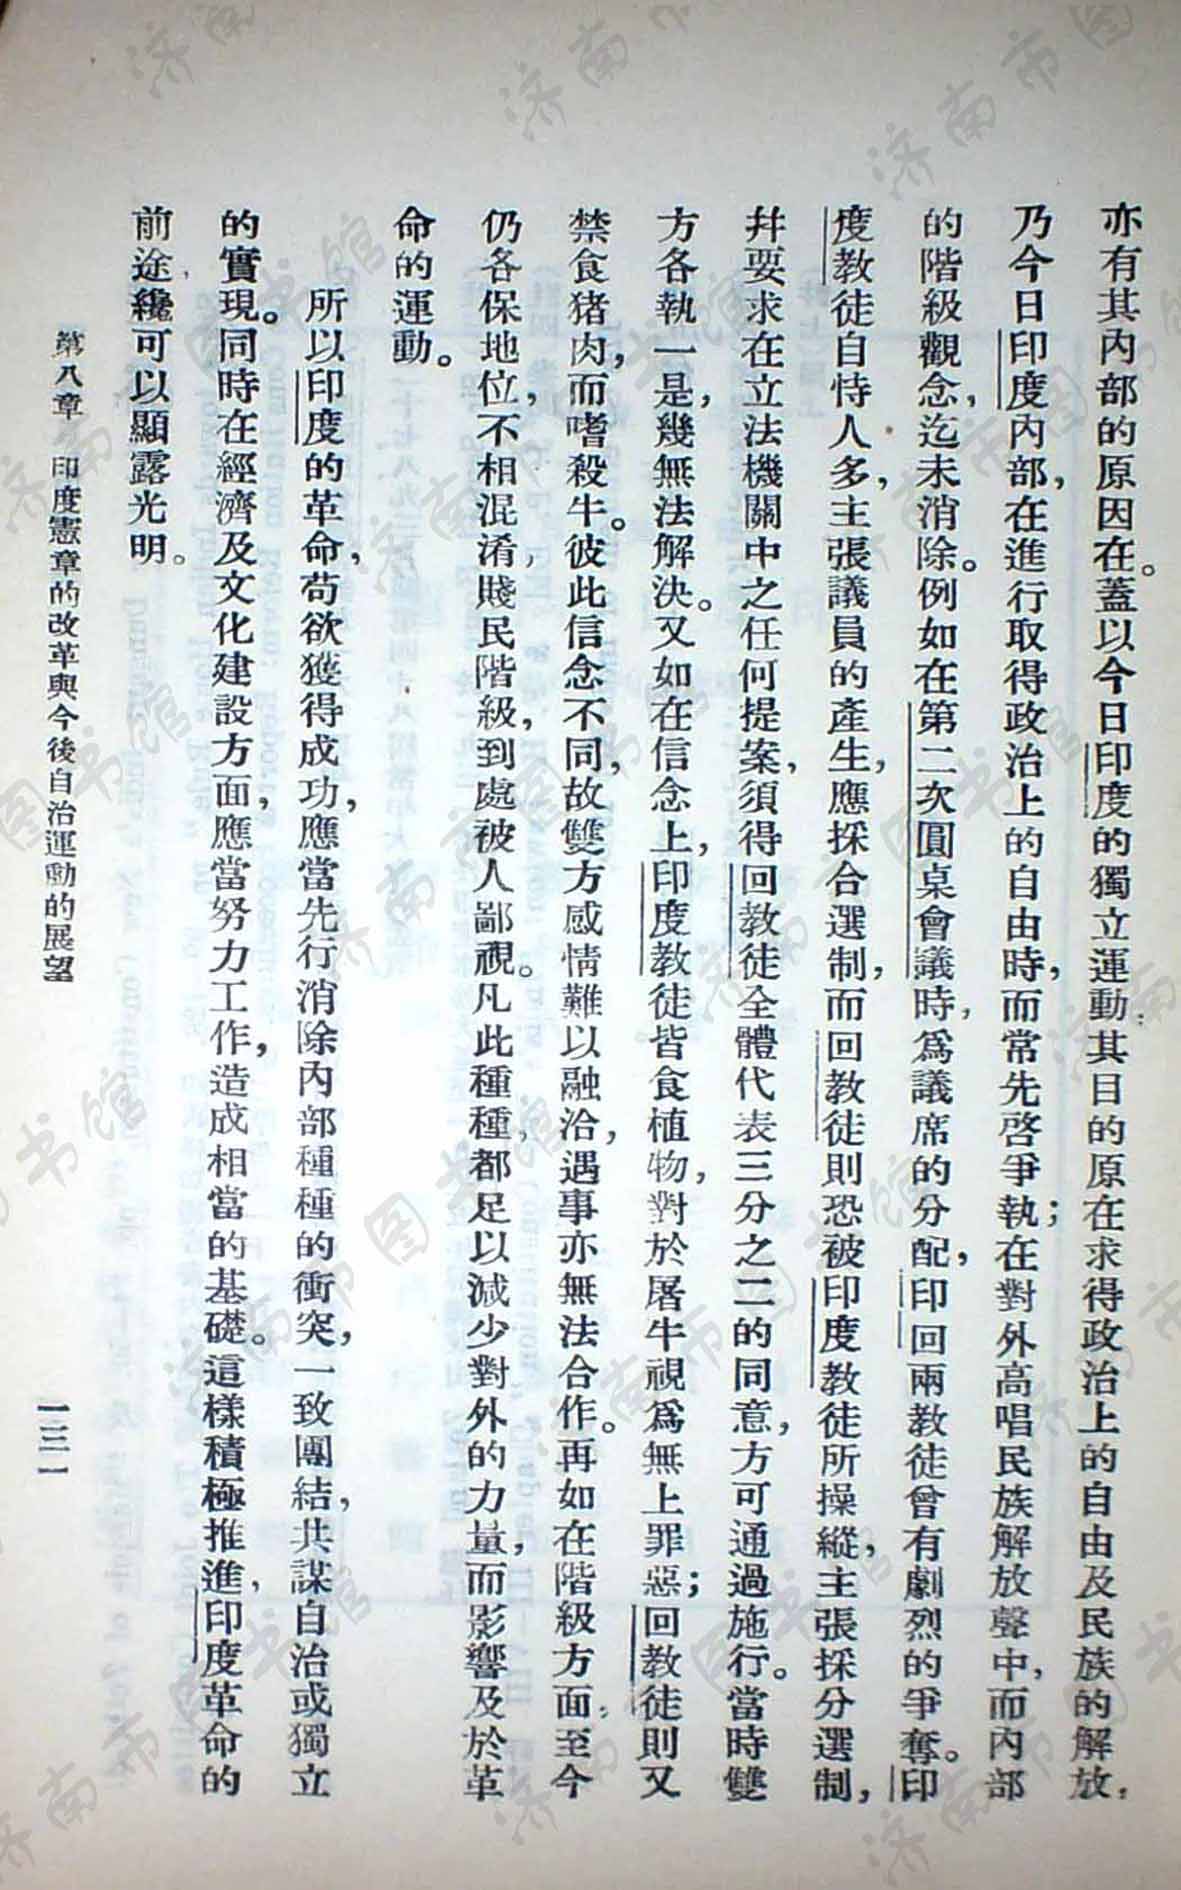 亦有其內部的原因在。蓋以今日印度的獨立運動，其目的原在求得政治上的自由及民族的解放，
乃今日印度內部，在進行取得政治上的自由時，而常先啓爭執；在對外高唱民族解放聲中，而內部
的階級觀念，迄未消除。例如在第二次圓桌會議時，爲議席的分配，印回兩教徒曾有劇烈的爭奪。印
度教徒自恃人多，主張議員的產生，應採合選制，而回教徒則恐被印度教徒所操縱，主張採分選制，
幷要求在立法機關中之任何提案，須得回教徒全體代表三分之二的同意，方可通過施行。當時雙
方各執一是，幾無法解決。又如在信念上，印度教徒皆食植物，對於屠牛視爲無上罪惡；回教徒則又
禁食猪肉，而嗜殺牛。彼此信念不同，故雙方感情難以融洽，遇事亦無法合作。再如在階級方面，至今
仍各保地位，不相混淆，賤民階級，到處被人鄙視。凡此種種，都足以減少對外的力量，而影響及於革
命的運動。
所以印度的革命，苟欲獲得成功，應當先行消除內部種種的衝突，一致團結，共謀自治或獨立
的實現。同時在經濟及文化建設方面，應當努力工作，造成相當的基礎。這樣積極推進，印度革命的
前途，纔可以顯露光明。
第八章 印度憲章的改革與今後自治運動的展望
一三一
济南市图书馆